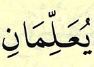 يُعَلِّمَانِ